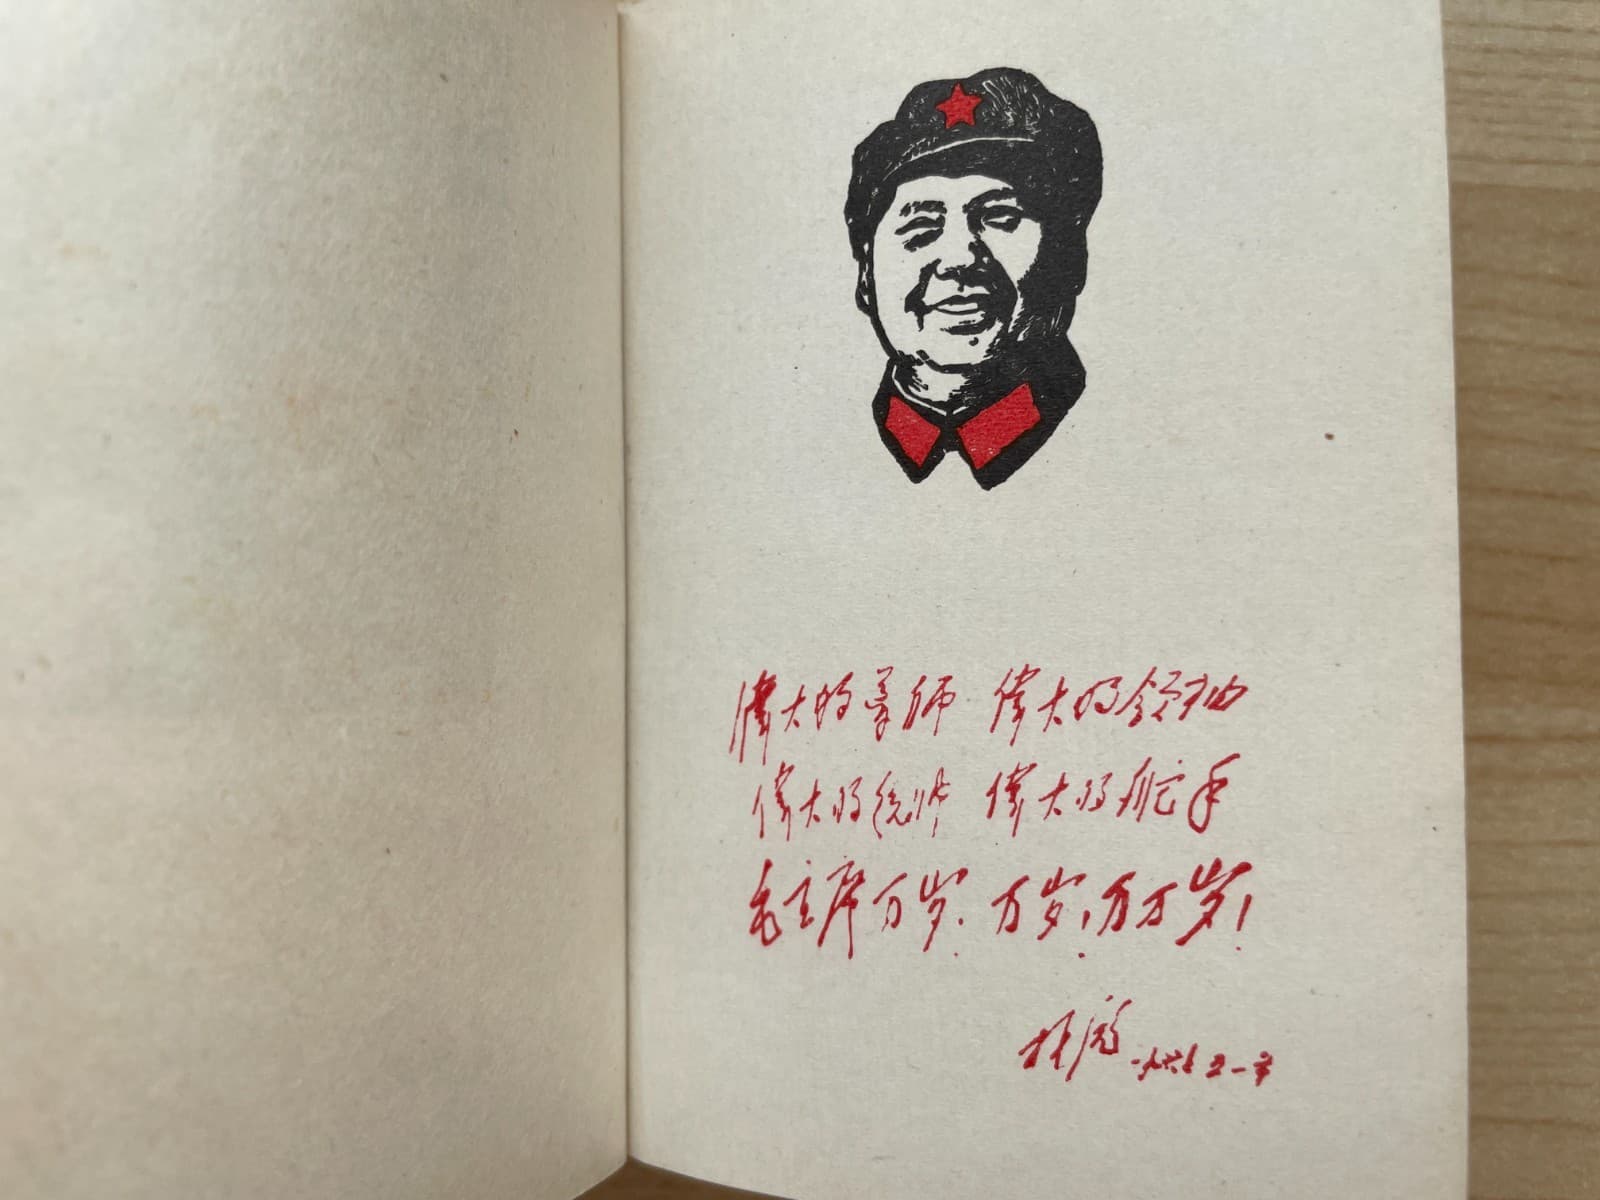 偉大的导师 偉大的领袖
偉大的统帅 偉大的舵手
毛主席万岁！万岁！万万岁！
林彪 一九六七 五一节